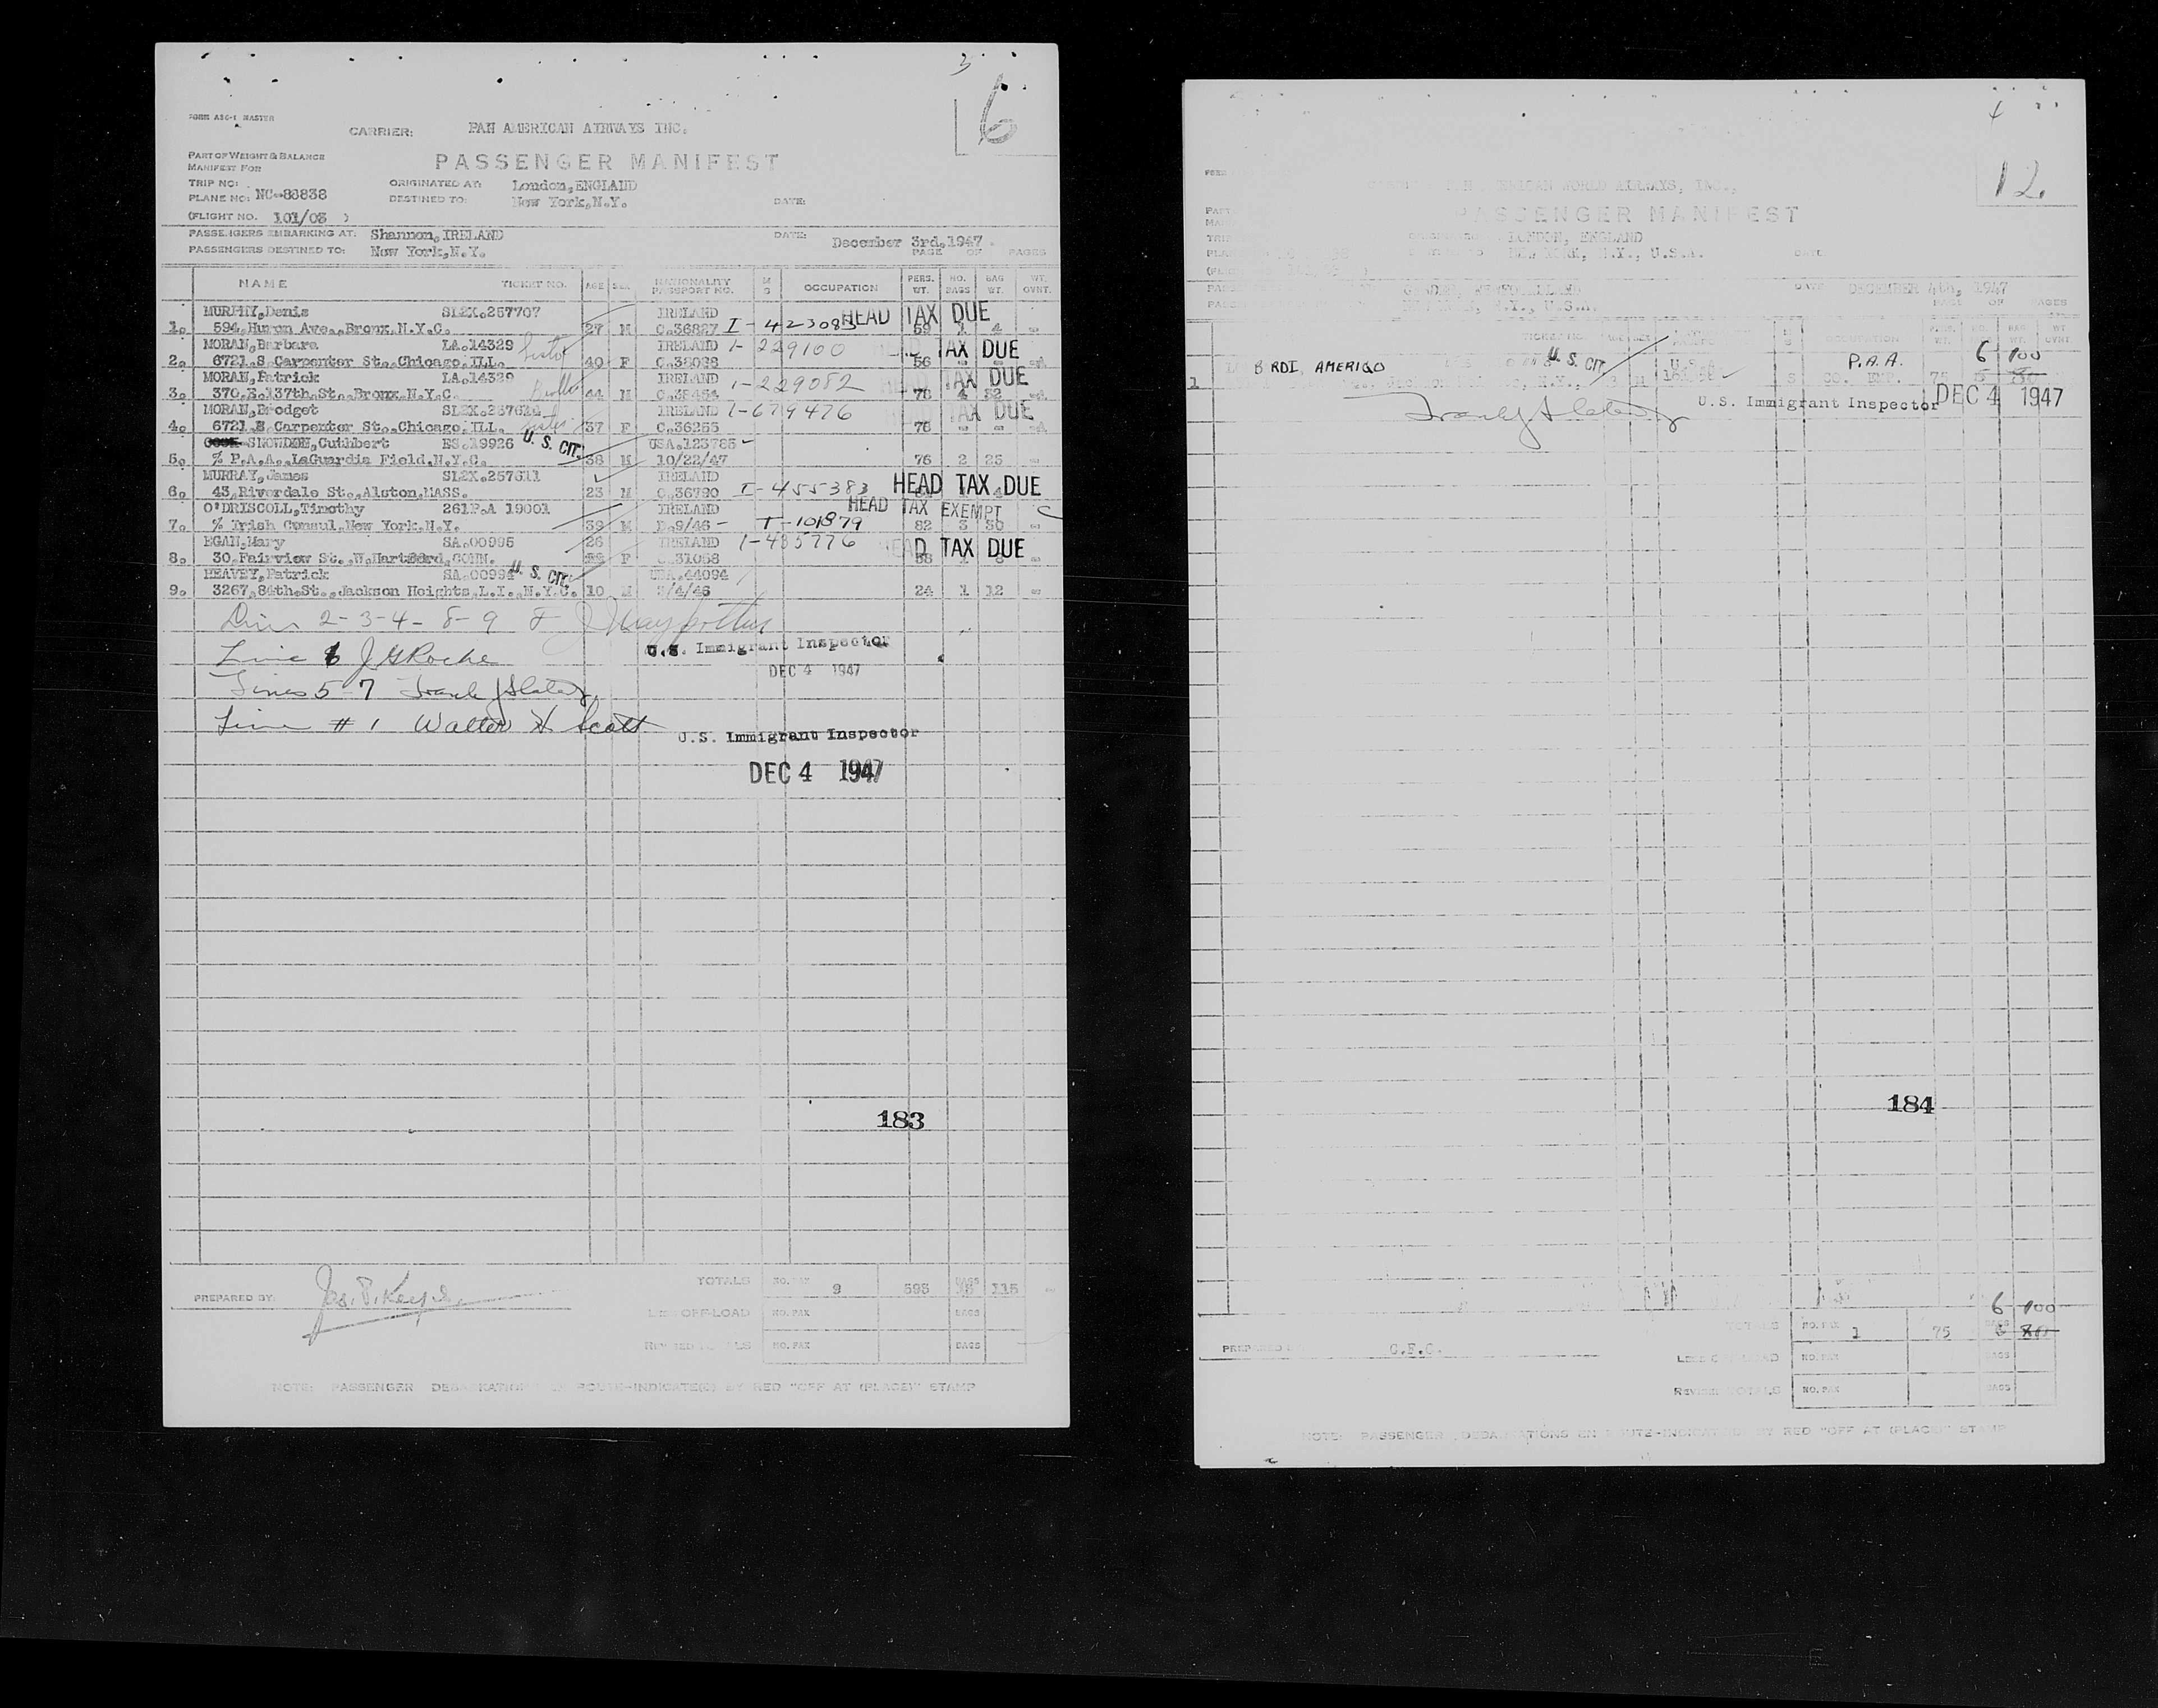 3
6
FORM ABC-1 MASTER
CARRIER: PAN AMERICAN AIRWAYS INC.
PART OF WEIGHT & BALANCE
MANIFEST FOR
PASSENGER MANIFEST
TRIP NO:
ORIGINATED AT: London, ENGLAND
PLANE NO: NC-88838
DESTINED TO: New York, N.Y.
DATE:
(FLIGHT NO. 101/03 )
PASSENGERS EMBARKING AT: Shannon, IRELAND
DATE: December 3rd, 1947.
PASSENGERS DESTINED TO: New York, N.Y.
PAGE OF PAGES
NAME TICKET NO. AGE SEX NATIONALITY PASSPORT NO. M S OCCUPATION PERS. WT. NO. BAGS BAG WT. WT. OVNT.
MURPHY, Denis SL2X.257707 IRELAND HEAD TAX DUE
1. 594, Huron Ave., Bronx, N.Y.C. 27 M C.36827 I-423083 59 1 4 -
MORAN, Barbara LA.14329 Sister IRELAND 1-229100 TAX DUE
2. 6721, S Carpenter St., Chicago, ILL. 40 F 56 - -
MORAN, Patrick LA.14329 IRELAND 1-229082 TAX DUE
3. 370, E. 137th. St., Bronx, N.Y.C. 44 M 78 4 32
MORAN, Bredget IRELAND 1-679476 TAX DUE
4. 6721, S Carpenter St., Chicago, ILL. sister 37 F C.36255 75 - -
SNOWDON, Cuthbert ES.19926 U. S. CIT. USA.123785
5. % P.A.A., LaGuardia Field, N.Y.C. 38 M 10/22/47 76 2 25 -
MURRAY, James SL2X.257611 IRELAND
6. 43, Riverdale St., Alston, MASS. 23 M C.36790 I-455383 HEAD TAX DUE
O'DRISCOLL, Timothy 261P.A 19001 IRELAND HEAD TAX EXEMPT
7. % Irish Consul, New York, N.Y. 39 M D.9/46 - T-101879 82 3 30 -
EGAN, Mary SA.00995 26 IRELAND 1-435776
8. 30, Fairview St., W. Hartford, CONN. F C.31058 HEAD TAX DUE
HEAVEY, Patrick SA.00994 U. S. CIT. USA.44094
9. 3267, 84th. St., Jackson Heights, L.I., N.Y.C. 10 M 5/4/46 24 1 12 -
Lines 2-3-4-8-9
U.S. Immigrant Inspector
Line 6 J G Roche
DEC 4 1947
Lines 5 7 Frank J Slater
Line # 1 Walter H Scott
U.S. Immigrant Inspector
DEC 4 1947
183
PREPARED BY:
TOTALS NO. PAX 9 595 BAGS 115
LESS OFF-LOAD NO. PAX BAGS
REVISED TOTALS NO. PAX BAGS
NOTE: PASSENGER DEBARKATIONS EN ROUTE-INDICATED BY RED "OFF AT (PLACE)" STAMP
12
AMERICAN WORLD AIRWAYS, INC.,
PASSENGER MANIFEST
LONDON, ENGLAND
NEW YORK, N.Y., U.S.A.
DATE:
GANDER, NEWFOUNDLAND
DATE DECEMBER 4th, 1947
NEW YORK, N.Y., U.S.A.
PAGE OF PAGES
OCCUPATION
B RDI, AMERIGO U. S. CIT. P.A.A. 6 100
1 N.Y., M S CO. EMP. 75
U.S. Immigrant Inspector DEC 4 1947
Frank J Slater
184
6 100
TOTALS NO. PAX 1 75 BAGS
PREPARED BY C.F.C.
LESS OFF-LOAD NO. PAX BAGS
REVISED TOTALS NO. PAX BAGS
NOTE: PASSENGER DEBARKATIONS EN ROUTE-INDICATED BY RED "OFF AT (PLACE)" STAMP